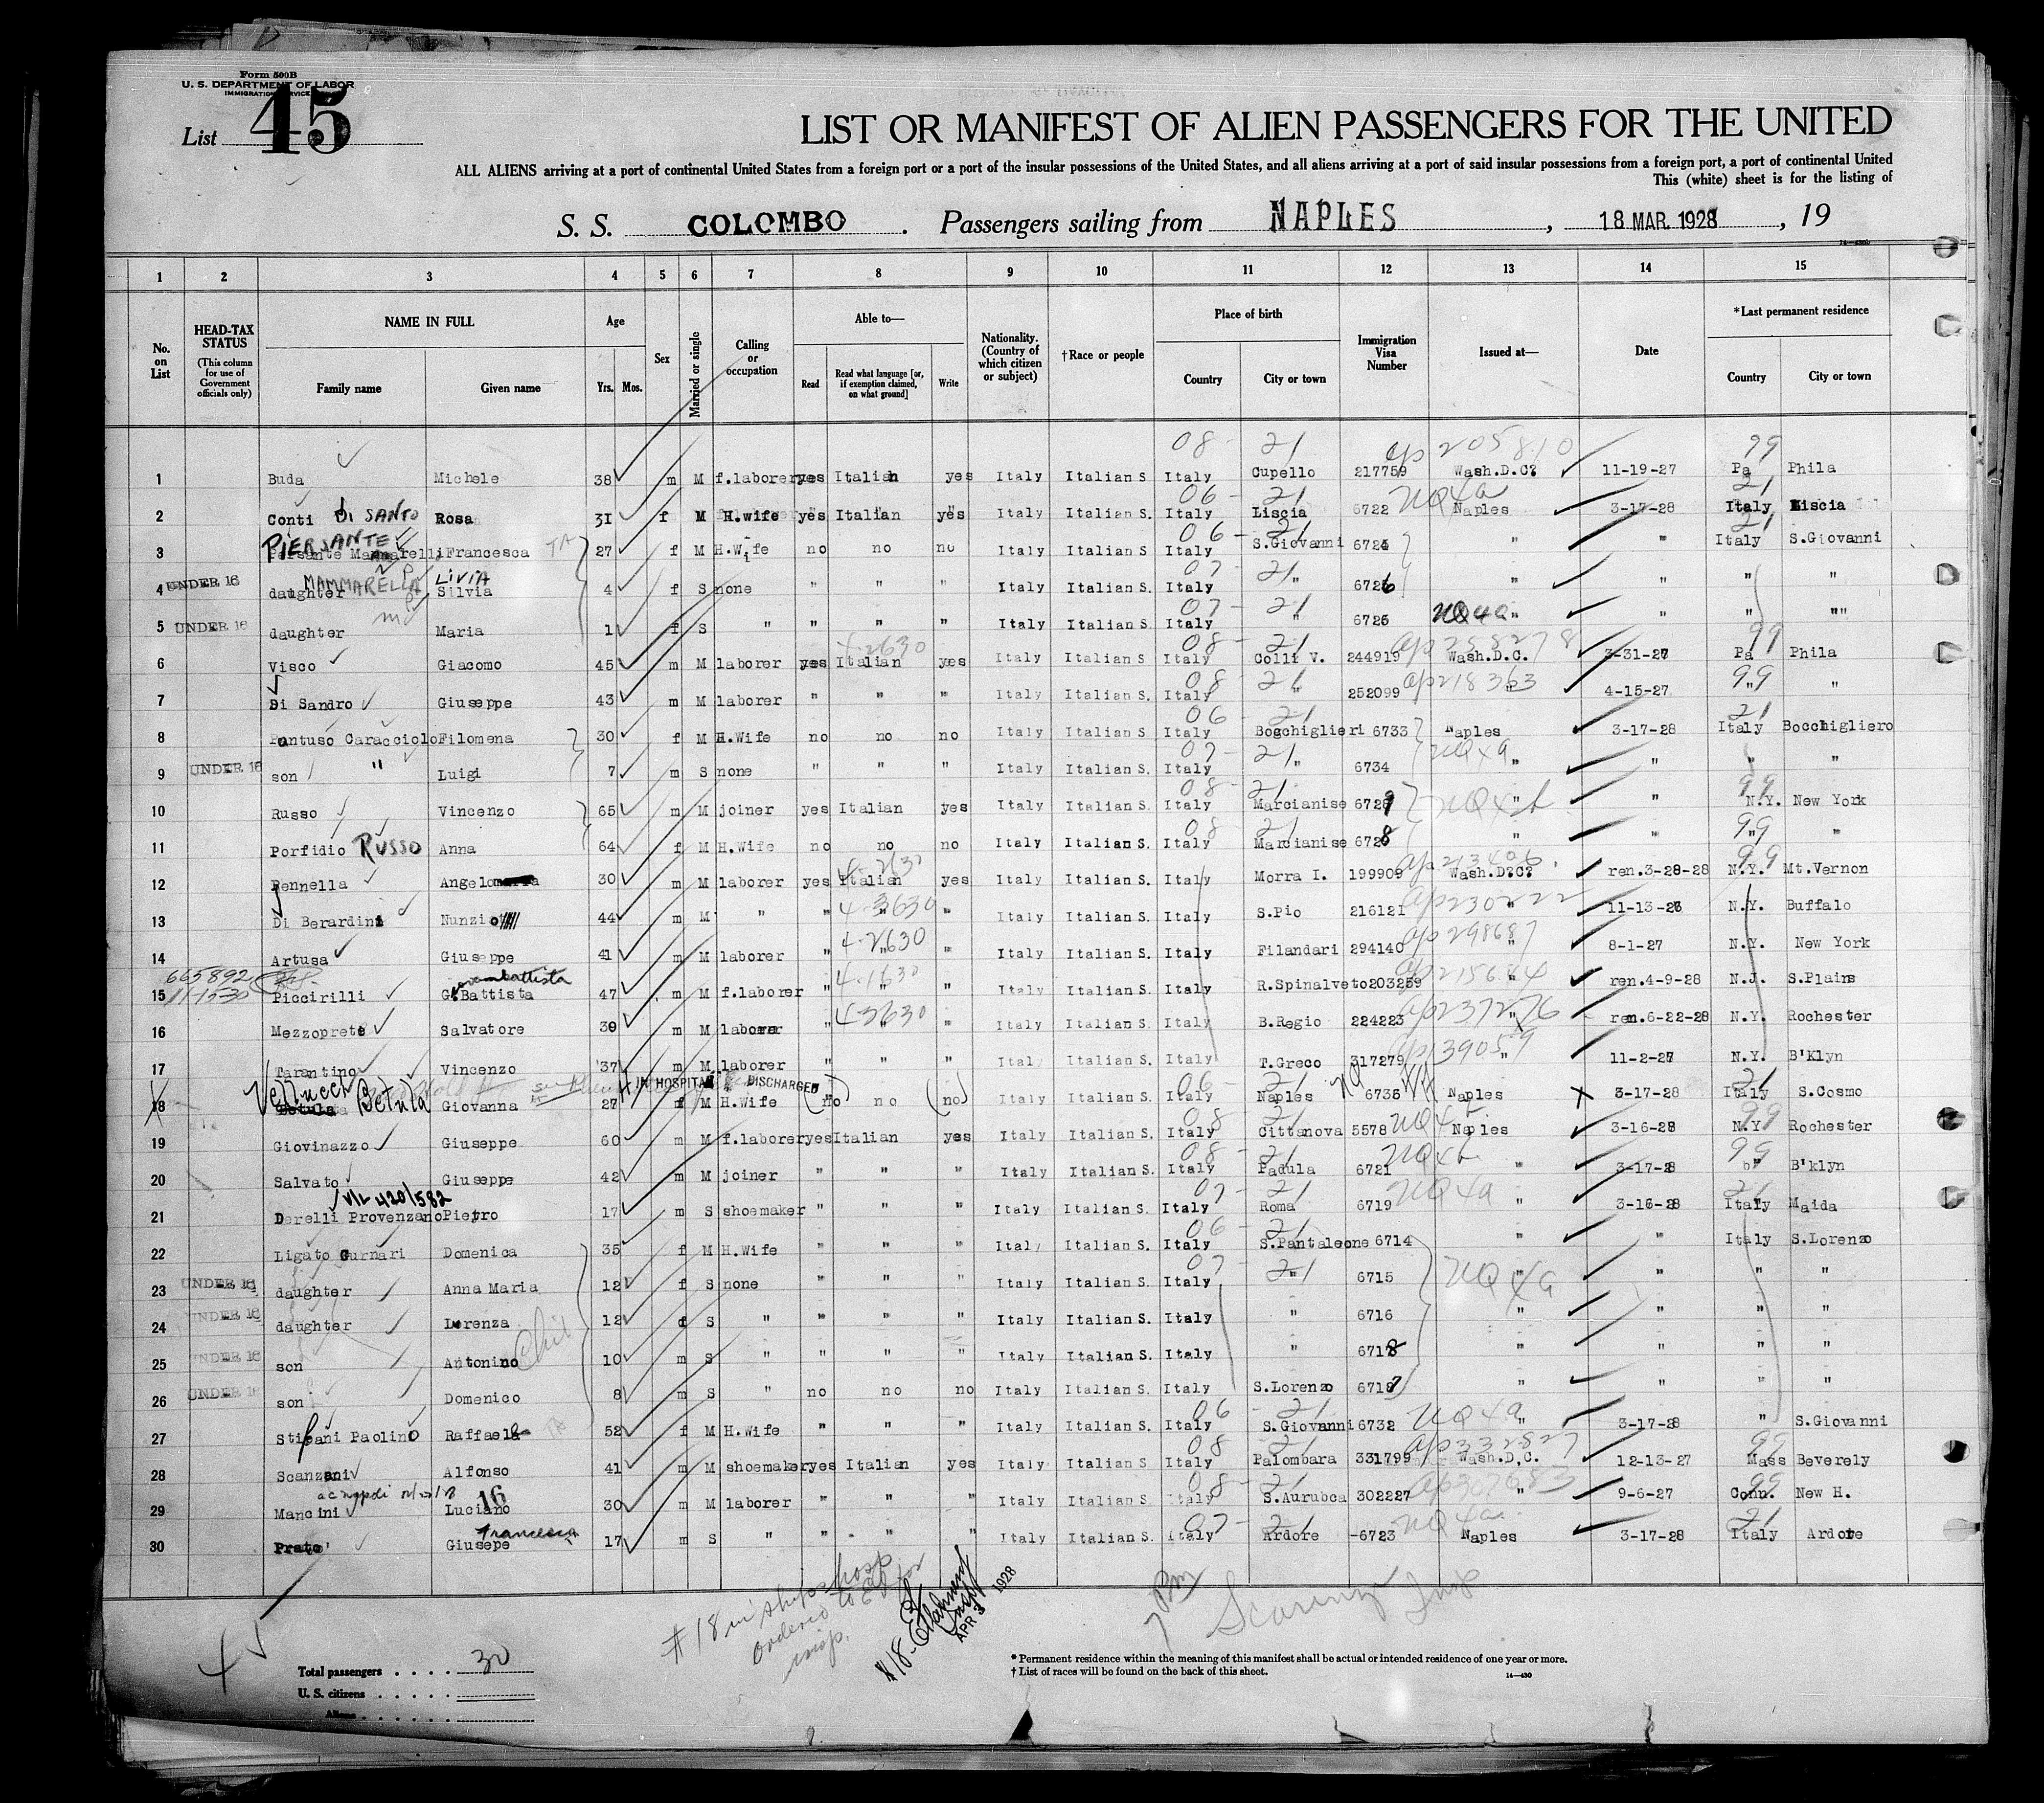 Form 500B
U. S. DEPARTMENT OF LABOR
IMMIGRATION SERVICE
List 45
LIST OR MANIFEST OF ALIEN PASSENGERS FOR THE UNITED
ALL ALIENS arriving at a port of continental United States from a foreign port or a port of the insular possessions of the United States, and all aliens arriving at a port of said insular possessions from a foreign port, a port of continental United
This (white) sheet is for the listing of
S. S. COLOMBO . Passengers sailing from NAPLES , 18 MAR. 1928 , 19
14-430
1 2 3 4 5 6 7 8 9 10 11 12 13 14 15
No. on List
HEAD-TAX STATUS (This column for use of Government officials only)
NAME IN FULL
Family name Given name
Age
Yrs. Mos.
Sex
Married or single
Calling or occupation
Able to—
Read Read what language [or, if exemption claimed, on what ground] Write
Nationality. (Country of which citizen or subject)
†Race or people
Place of birth
Country City or town
Immigration Visa Number
Issued at—
Date
*Last permanent residence
Country City or town
08 - 21 ap 205810 99
1 Buda Michele 38 m M f.laborer yes Italian yes Italy Italian S Italy Cupello 217759 Wash.D.C. 11-19-27 Pa Phila
06 - 21 NQ4a 21
2 Conti DI SANTO Rosa 31 f M H.wife yes Italian yes Italy Italian S. Italy Liscia 6722 Naples 3-17-28 Italy Liscia
PIERSANTE 06 - 21 21
3 Mammarelli Francesca 27 f M H.Wife no no no Italy Italian S. Italy S.Giovanni 6724 " " Italy S.Giovanni
UNDER 16 MAMMARELLA LIVIA 07 - 21
4 daughter Silvia 4 f S none " " " Italy Italian S. Italy " 6726 " " " "
UNDER 16 07 - 21 NQ4a
5 daughter Maria 1 f S " " " " Italy Italian S. Italy " 6725 " " " "
4-2630 08 - 21 ap 258278 99
6 Visco Giacomo 45 m M laborer yes Italian yes Italy Italian S Italy Colli V. 244919 Wash.D.C. 3-31-27 Pa Phila
08 - 21 ap 218363 99
7 Di Sandro Giuseppe 43 m M laborer " " " Italy Italian S. Italy " 252099 " 4-15-27 " "
06 - 21 21
8 Pantuso Caracciolo Filomena 30 f M H.Wife no no no Italy Italian S. Italy Bocchiglieri 6733 Naples 3-17-28 Italy Bocchigliero
UNDER 16 07 - 21 NQ4a
9 son " Luigi 7 m S none " " " Italy Italian S. Italy " 6734 " " " "
08 - 21 99
10 Russo Vincenzo 65 m M joiner yes Italian yes Italy Italian S. Italy Marcianise 6729 " " N.Y. New York
08 - 21 99
11 Porfidio RUSSO Anna 64 f M H.Wife no no no Italy Italian S. Italy Marcianise 6728 " " " "
ap 213406 99
12 Pennella Angelo 30 m M laborer yes Italian yes Italy Italian S. Italy Morra I. 199909 Wash.D.C. ren.3-28-28 N.Y. Mt.Vernon
4-3630 ap 230222
13 Di Berardini Nunzio 44 m M " " " " Italy Italian S. Italy S.Pio 216121 " N.Y. Buffalo
4-2630 ap 298687
14 Artusa Giuseppe 41 m M laborer " " " Italy Italian S. Italy Filandari 294140 " 8-1-27 N.Y. New York
665892 11-15-30 4-1630
15 Piccirilli G.Battista 47 m M f.laborer " " " Italy Italian S. Italy R.Spinalveto 203259 " ren.4-9-28 N.J. S.Plains
4-3630 ap 237276
16 Mezzoprete Salvatore 39 m M laborer " " " Italy Italian S. Italy B.Regio 224223 " ren.6-22-28 N.Y. Rochester
ap 139059
17 Tarantino Vincenzo 37 m M laborer " " " Italy Italian S. Italy T.Greco 317279 " 11-2-27 N.Y. B'Klyn
Vellucci Betula IN HOSPITAL DISCHARGED 06 21 21
18 Giovanna 27 f M H.Wife (no no (no) Italy Italian S. Italy Naples 6735 Naples 3-17-28 Italy S.Cosmo
08 - 21 99
19 Giovinazzo Giuseppe 60 m M f.laborer yes Italian yes Italy Italian S. Italy Cittanova 5578 Naples 3-16-28 N.Y. Rochester
08 - 21 99
20 Salvato Giuseppe 42 m M joiner " " " Italy Italian S. Italy Padula 6721 " 3-17-28 " B'klyn
V/L 420/582 07 - 21 NQ4a 21
21 Derelli Provenzano Pietro 17 m S shoemaker " " " Italy Italian S. Italy Roma 6719 " 3-16-28 Italy Maida
06 - 21
22 Ligato Gurnari Domenica 35 f M H.Wife " " " Italy Italian S. Italy S.Pantaleone 6714 " " Italy S.Lorenzo
UNDER 16 07 - 21 NQ4a
23 daughter Anna Maria 12 f S none " " " Italy Italian S. Italy " 6715 " " " "
UNDER 16
24 daughter Lorenza 12 f S " " " " Italy Italian S. Italy " 6716 " " " "
UNDER 16
25 son Antonino 10 m S " " " " Italy Italian S. Italy " 6718 " " " "
UNDER 16
26 son Domenico 8 m S " no no no Italy Italian S. Italy S.Lorenzo 6717 " " " "
06 - 21 NQ4a
27 Stifani Paolino Raffaela 52 f M H.Wife " " " Italy Italian S. Italy S.Giovanni 6732 " 3-17-28 " S.Giovanni
08 21 ap 332827 99
28 Scanzani Alfonso 41 m M shoemaker yes Italian yes Italy Italian S. Italy Palombara 331799 Wash.D.C. 12-13-27 Mass Beverely
16 08 - 21 ap 307683 99
29 Mancini Luciano 30 m M laborer " " " Italy Italian S. Italy S.Aurubca 302227 " 9-6-27 Conn. New H.
Francesco 07 - 21 NQ4a 21
30 Prato Giusepe 17 m S " " " " Italy Italian S. Italy Ardore -6723 Naples 3-17-28 Italy Ardore
#18 in ship's hosp
ordered to
insp.
#18-
APR 3 1928
Total passengers . . . . 30
U. S. citizens . . . . .
Aliens . . . . .
* Permanent residence within the meaning of this manifest shall be actual or intended residence of one year or more.
† List of races will be found on the back of this sheet.
14-430